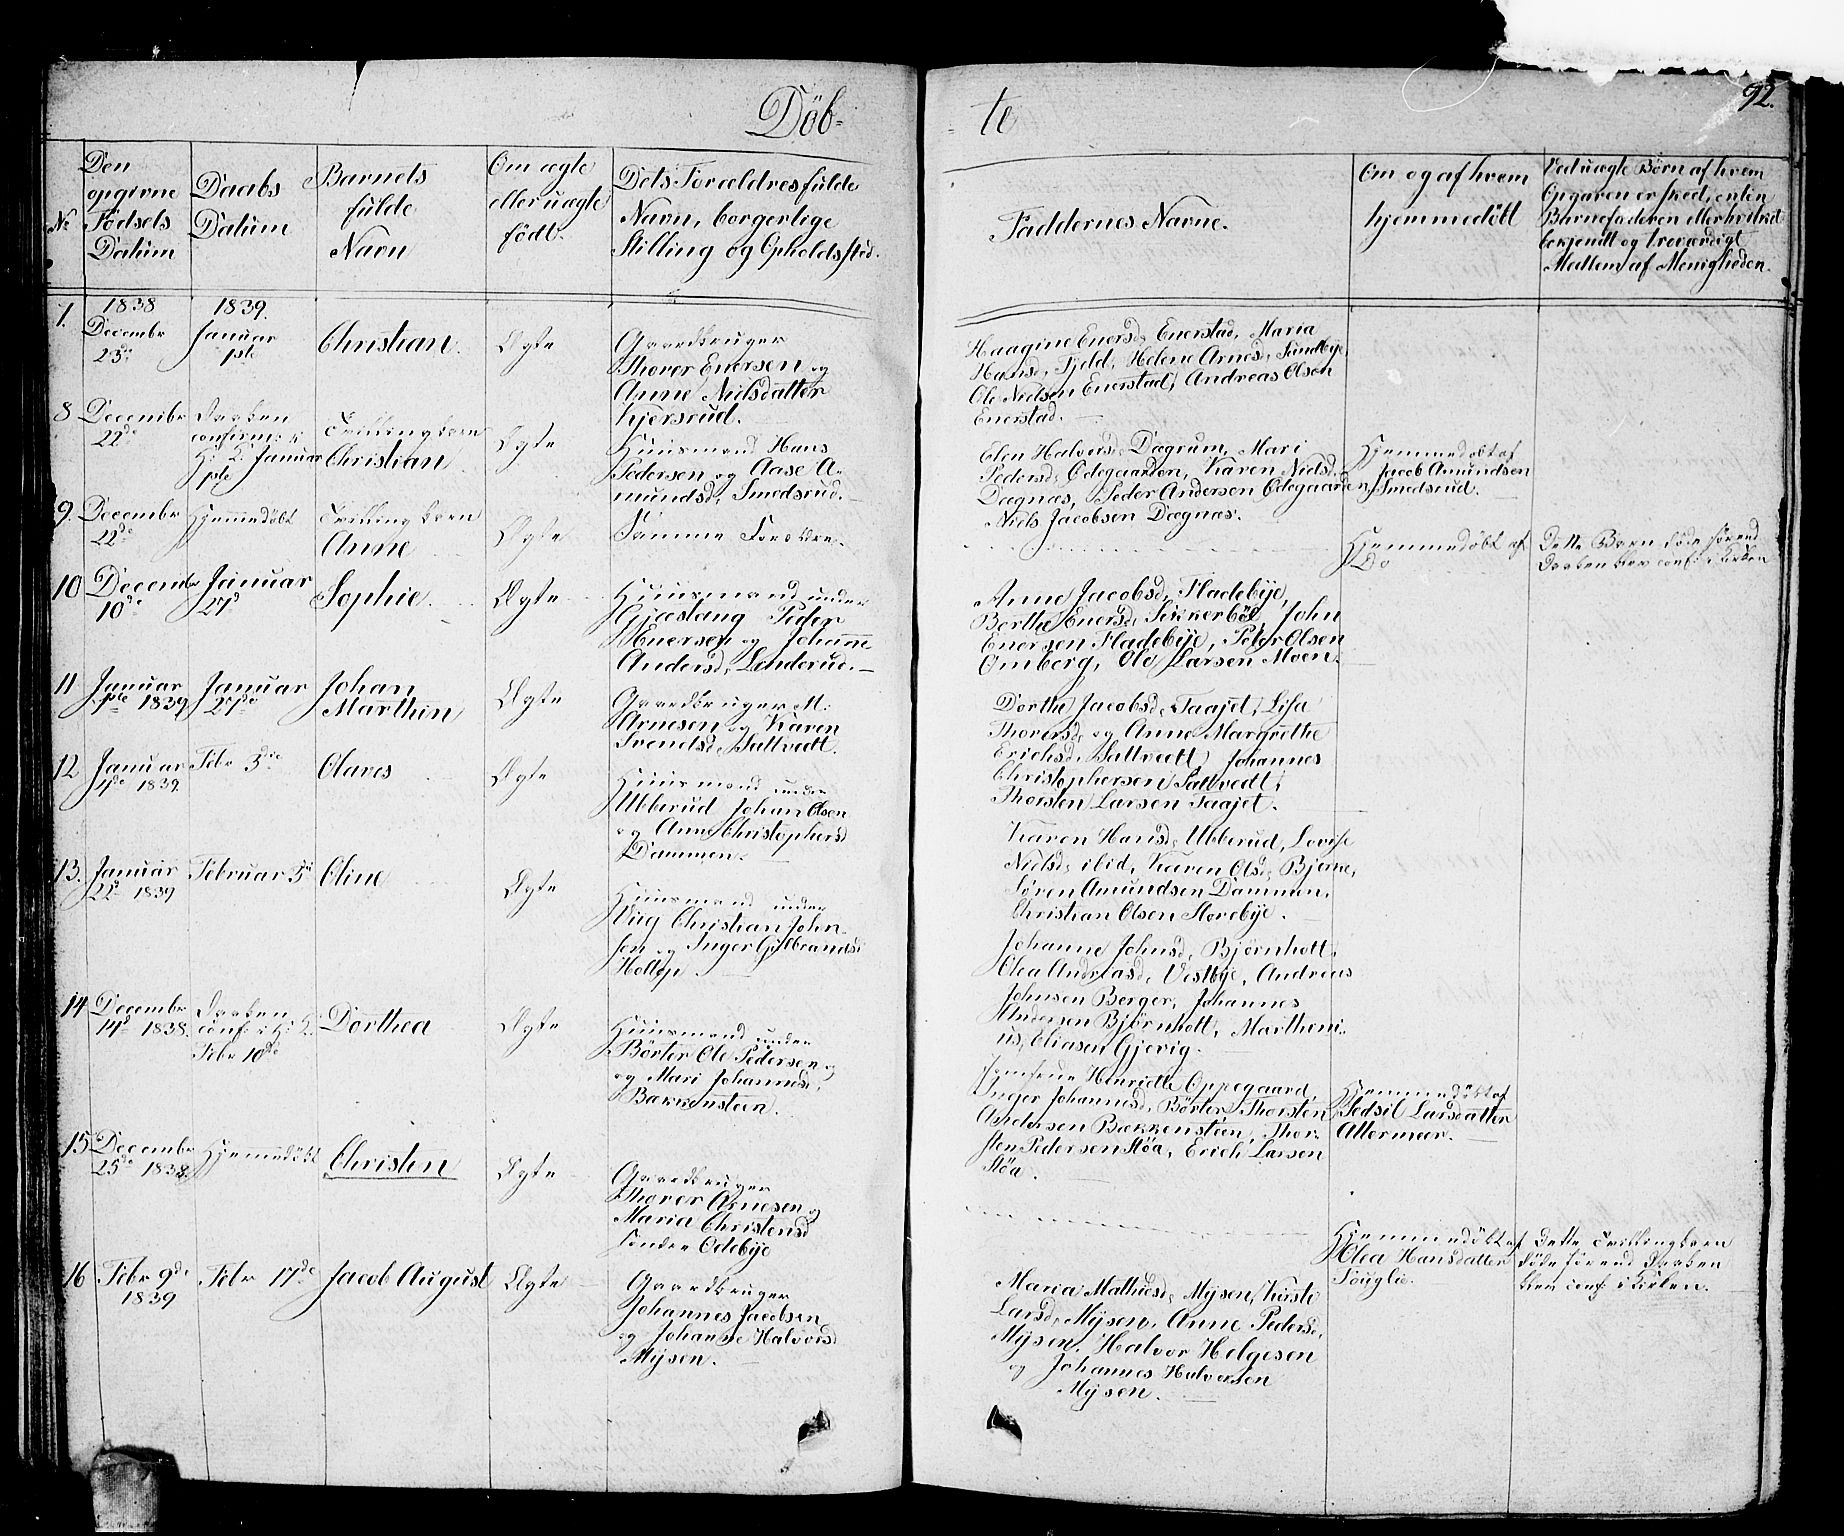 Döb-
te
92.
No
Den
opgivne
Födsels
Datum
Daabs
Datum
Barnets
fulde
Navn
Om ægte
eller uægte
födt.
Dets Forældres fulde
Navn, borgerlige
Stilling og Opholdssted.
Faddernes Navne.
Om og af hvem
hjemmedöbt
Ved uægte Börn af hvem
Opgaven er skeed, enten
Barnefaderen eller hvilket
bekjendt og troværdigt
Medlem af Menigheden.
7.
1838
Decembr
23de
1839.
Januar
1ste
Christian.
Ægte
Gaardbruger
Thorer Enersen og
Anne Nielsdatter
Kjersrud.
Haagine Enersd, Enerstad, Maria
Hansd, Fjeld, Helene Arnesd, Sundbye,
Ole Nielsen Enerstad, Andreas Olsen
Enerstad.
8
Decembr
22de
Daaben
confirm: i
H: K. Januar
1ste
Tvillingbarn
Christian
Ægte
Huusmand Hans
Pedersen og Aase A-
mundsd, Smedsrud.
Elen Halvorsd, Dægrum, Mari
Pedersd, Ödegaarden, Karen Nielsd,
Dægnæs, Peder Andersen Ödegaarden,
Niels Jacobsen Dægnæs.
Hjemmedöbt af
Jacob Amundsen
Smedsrud.
9.
Decembr
22de
Hjemmedöbt
Tvilling barn
Anne
Ægte
Samme Forældre.
Hjemmedöbt af
Do
Dette Barn döde förend
Daaben blev conf: i Kirken
10
Decembr
10de
Januar
27d
Sophie.
Ægte
Huusmand under
Gjæstang Peder
Enersen og Johanne
Andersd, Lenderud.
Anne Jacobsd, Fladebye,
Berthe Enersd, Sikkerböl, John
Enersen Fladebye, Peder Olsen
Omberg, Ole Larsen Moen.
11
Januar
1ste 1839
Januar
27de
Johan
Marthin
Ægte
Gaardbruger M:
Arnesen og Karen
Svendsd, Saltvedt.
Dorthe Jacobsd, Taajet, Lisa
Thorersd, og Anne Margrethe
Erichsd, Saltvedt, Johannes
Christophersen Saltvedt,
Thorsten Larsen Taajet.
12
Januar
4de 1839.
Febr 3die
Olaves
Ægte
Huusmand under
Ubberud Johan Olsen
og Anne Christophersd
Dammen.
Karen Hansd, Ubberud, Lovise
Nielsd, ibid, Karen Olsd, Bjerne,
Sören Amundsen Dammen,
Christian Olsen Storebye.
13.
Januar
22d 1839
Februar 3d
Oline
Ægte
Huusmand under
Vüg Christian John-
sen og Inger Gulbrandsd
Holtop.
Johanne Johnsd, Björnholt,
Olea Andreasd, Vestbye, Andreas
Johnsen Berger, Johannes
Andersen Björnholt, Martheni-
us, Eliasen Gjevig.
14
Decembr
14d 1838.
Daaben
conf: i H: K.
Febr 10de
Dorthea
Ægte
Huusmand under
Börter Ole Pedersen
og Mari Johannesd,
Bækkensteen.
Jomfrue Henriette Oppegaard,
Inger Johannesd, Börter, Thorsten
Andersen Bækkensteen, Thor-
sten Pedersen Stöa, Erich Larsen
Stöa.
Hjemmedöbt af
Sedsil Larsdatter
Altermoer.
15
Decembr
25de 1838.
Hjemmedöbt
Christen
Ægte
Gaardbruger
Thorer Arnesen og
Maria Christensd
Söndre Odebye
Hjemmedöbt af
Olea Hansdatter
Souglie.
Dette Tvillingbarn
döde förend Daaben
blev conf: i Kirken.
16
Febr 9de
1839
Febr 17de
Jacob August
Ægte
Gaardbruger
Johannes Jacobsen
og Johanne Halvorsd
Mysen.
Maria Mathiesd, Mysen, Kirsti
Larsd, Mysen, Anne Pedersd,
Mysen, Halvor Helgesen
og Johannes Halvorsen
Mysen.